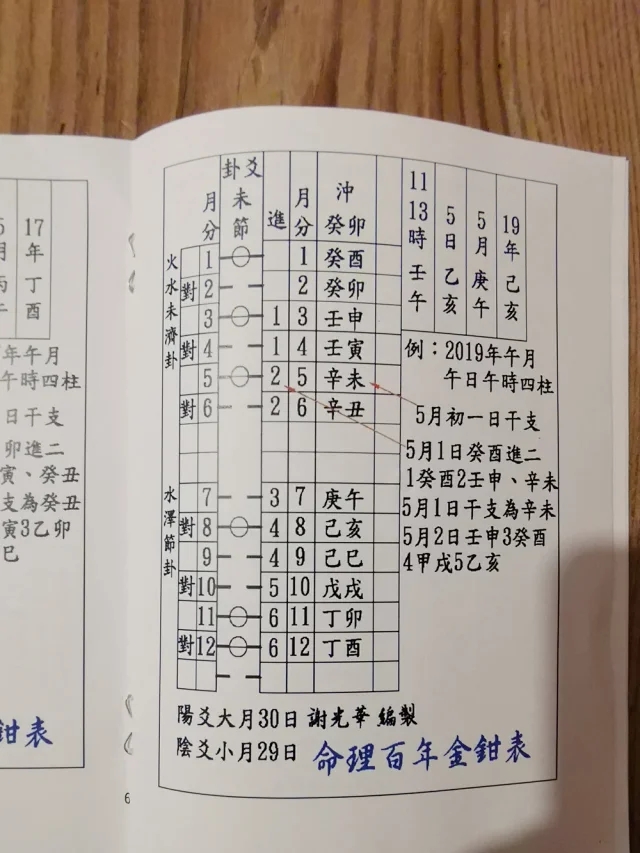 17年丁酉
年午月
午時四柱
日干支
卯進二
寅、癸丑
支為癸丑
寅3乙卯
巳
鉗表
月分
卦爻未節
進
月分
沖癸卯
火水未濟卦
1 1 癸酉
對 2 2 癸卯
3 1 3 壬申
對 4 1 4 壬寅
5 2 5 辛未
對 6 2 6 辛丑
水澤節卦
7 3 7 庚午
對 8 4 8 己亥
9 4 9 己巳
對 10 5 10 戊戌
11 6 11 丁卯
對 12 6 12 丁酉
19年己亥
5月庚午
5日乙亥
11 13時壬午
例：2019年午月
午日午時四柱
5月初一日干支
5月1日癸酉進二
1癸酉2壬申、辛未
5月1日干支為辛未
5月2日壬申3癸酉
4甲戌5乙亥
陽爻大月30日 謝光華 編製
陰爻小月29日 命理百年金鉗表
6